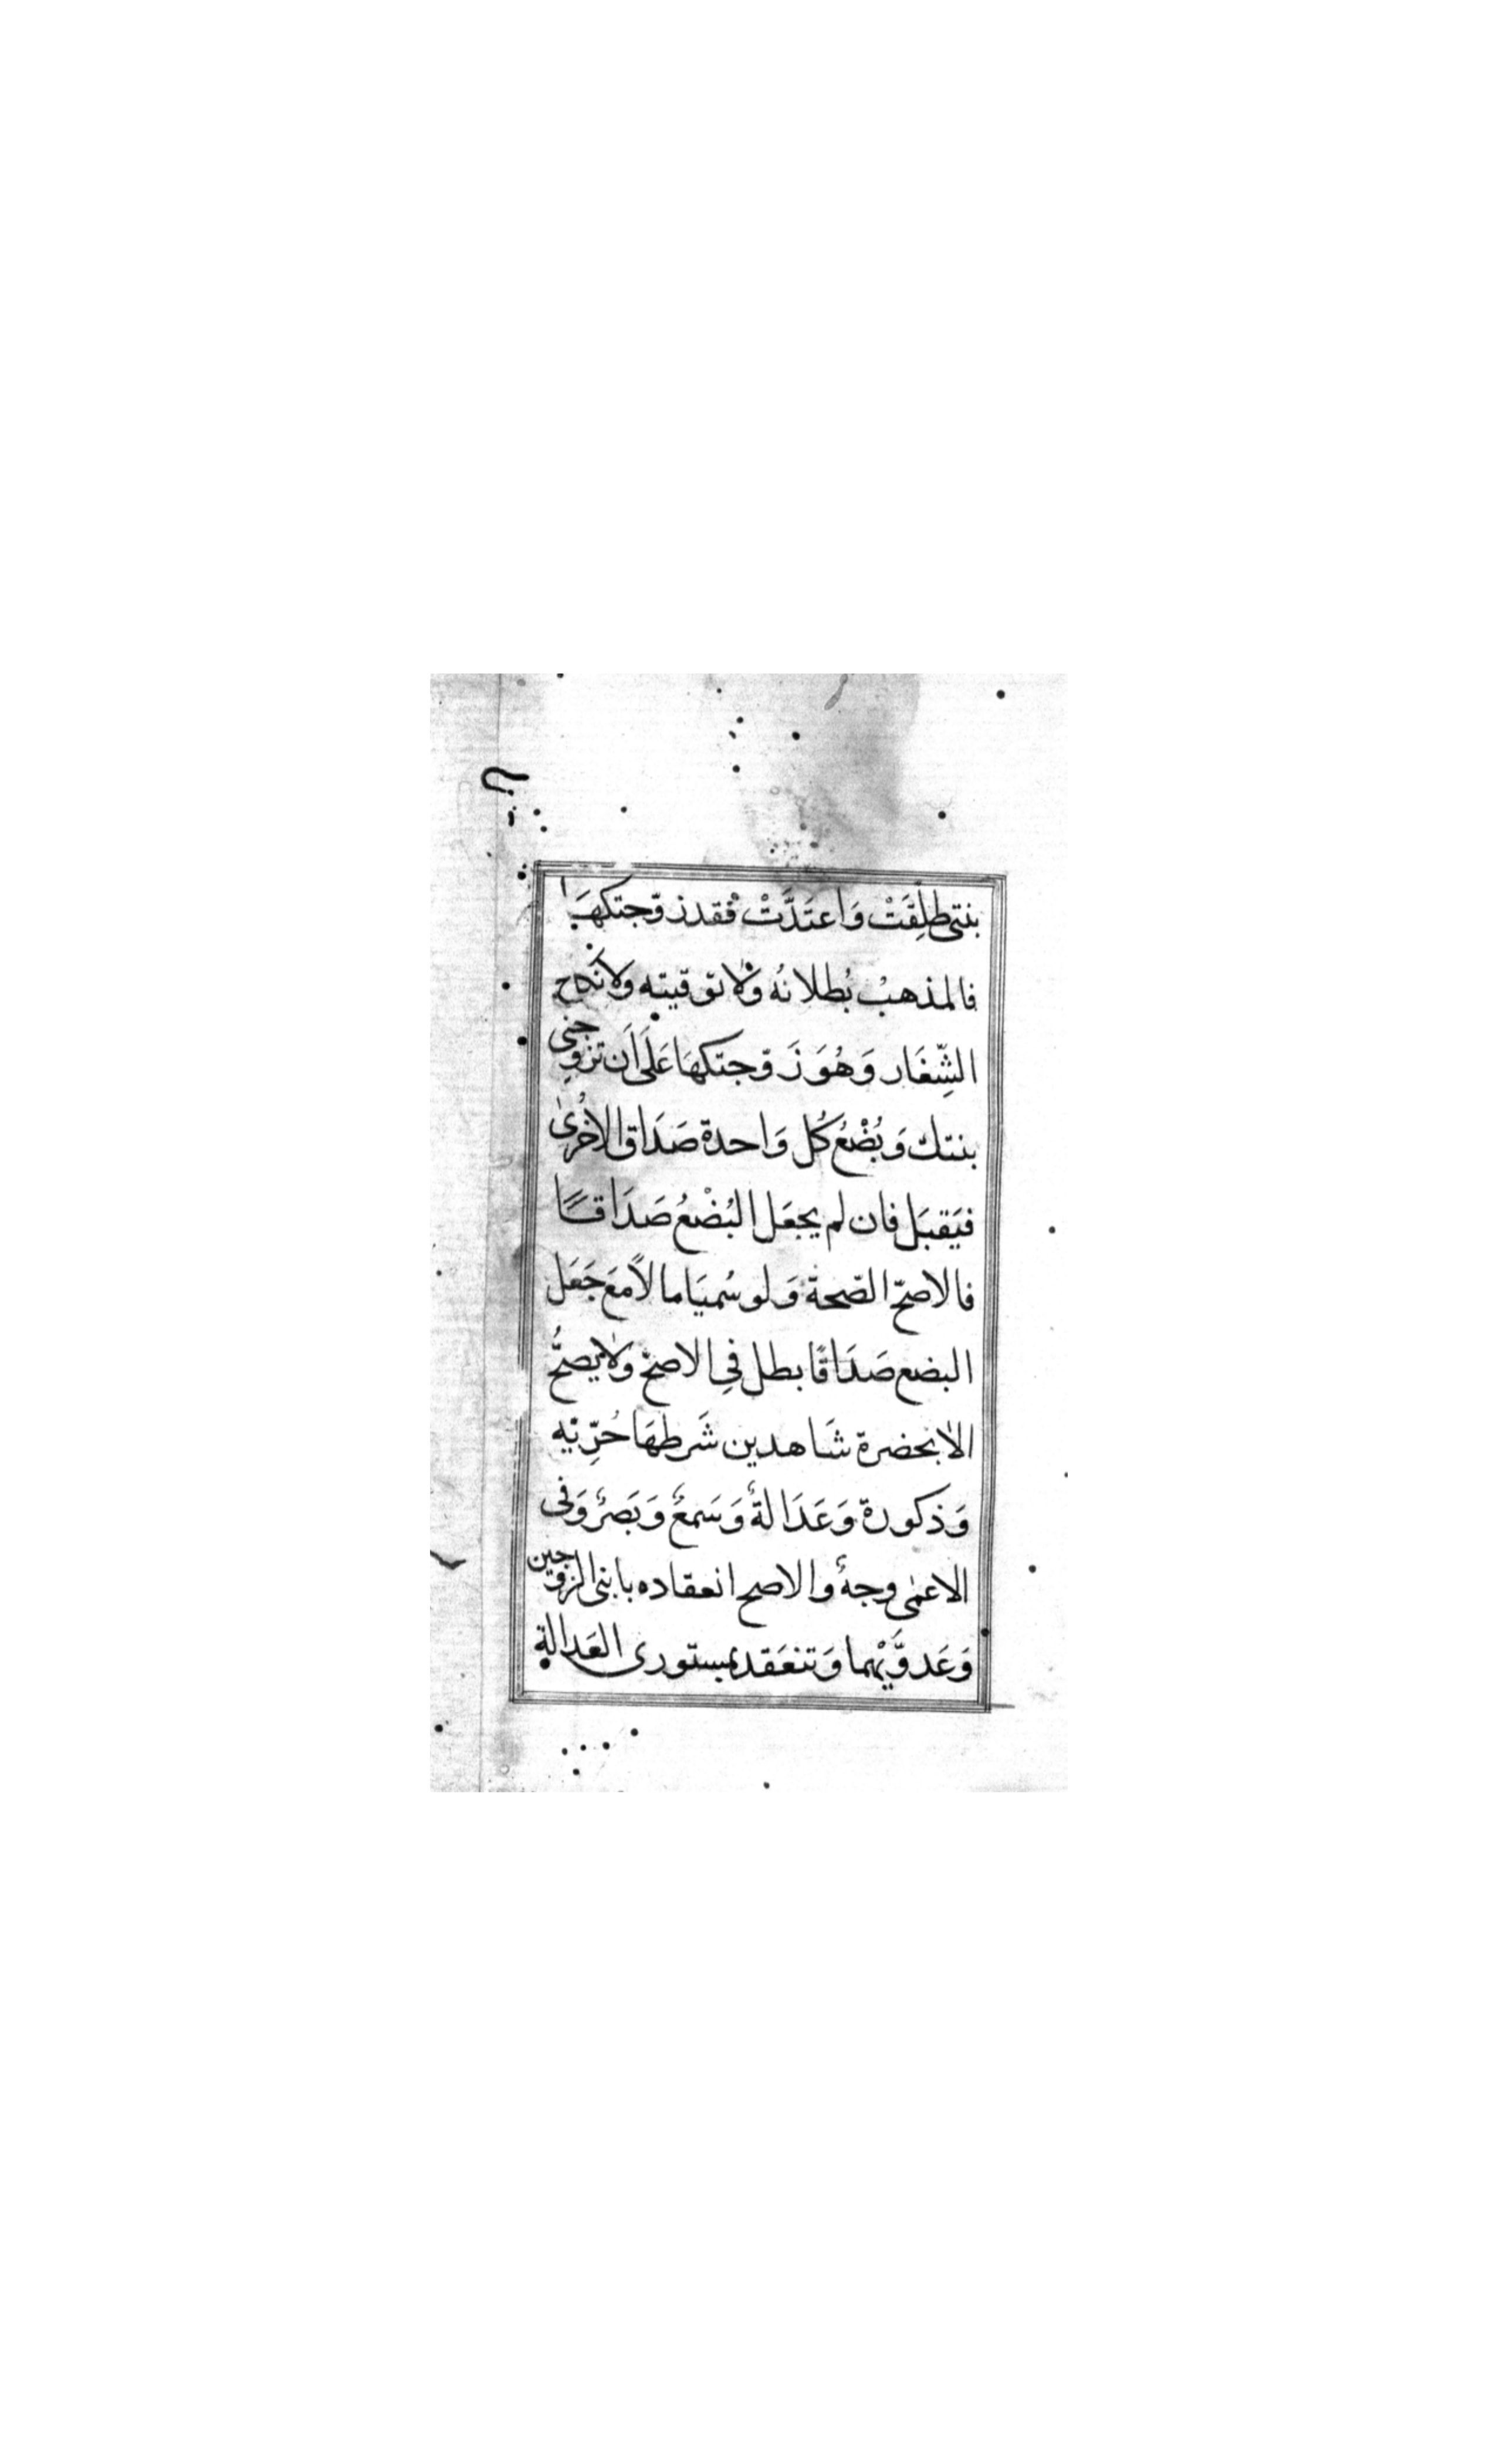 بنتى طلِقَتْ وَاعتَدَّتْ فقدزوّجتكهَا
فالمذهبُ بُطلانُه وَلاتوقيتِه ولانكاح
الشِّغَار وَهُوَ زَوّجتكهَا عَلَى اَن تزوِجنى
بنتك وَبُضْعُ كُل وَاحدة صَدَاق الاخُرىٰ
فيَقبَل فان لم يجعَل البُضْعُ صَدَاقًا
فالاصحّ الصّحة وَلوسُميَا مالاً مَعَ جَعَل
البضع صَدَاقًا بطل فِى الاصحّ وَلايَصحُّ
الابحضرة شَاهدين شَرطهَا حُرِّيّه
وَذكورة وَعَدَالةٌ وَسَمعٌ وَبَصرٌ وَفى
الاعمىٰ وجهٌ والاصح انعقاده بابنى الزوجين
وَعَدوَّيْهما وَتنعَقد بمستورى العَدالة